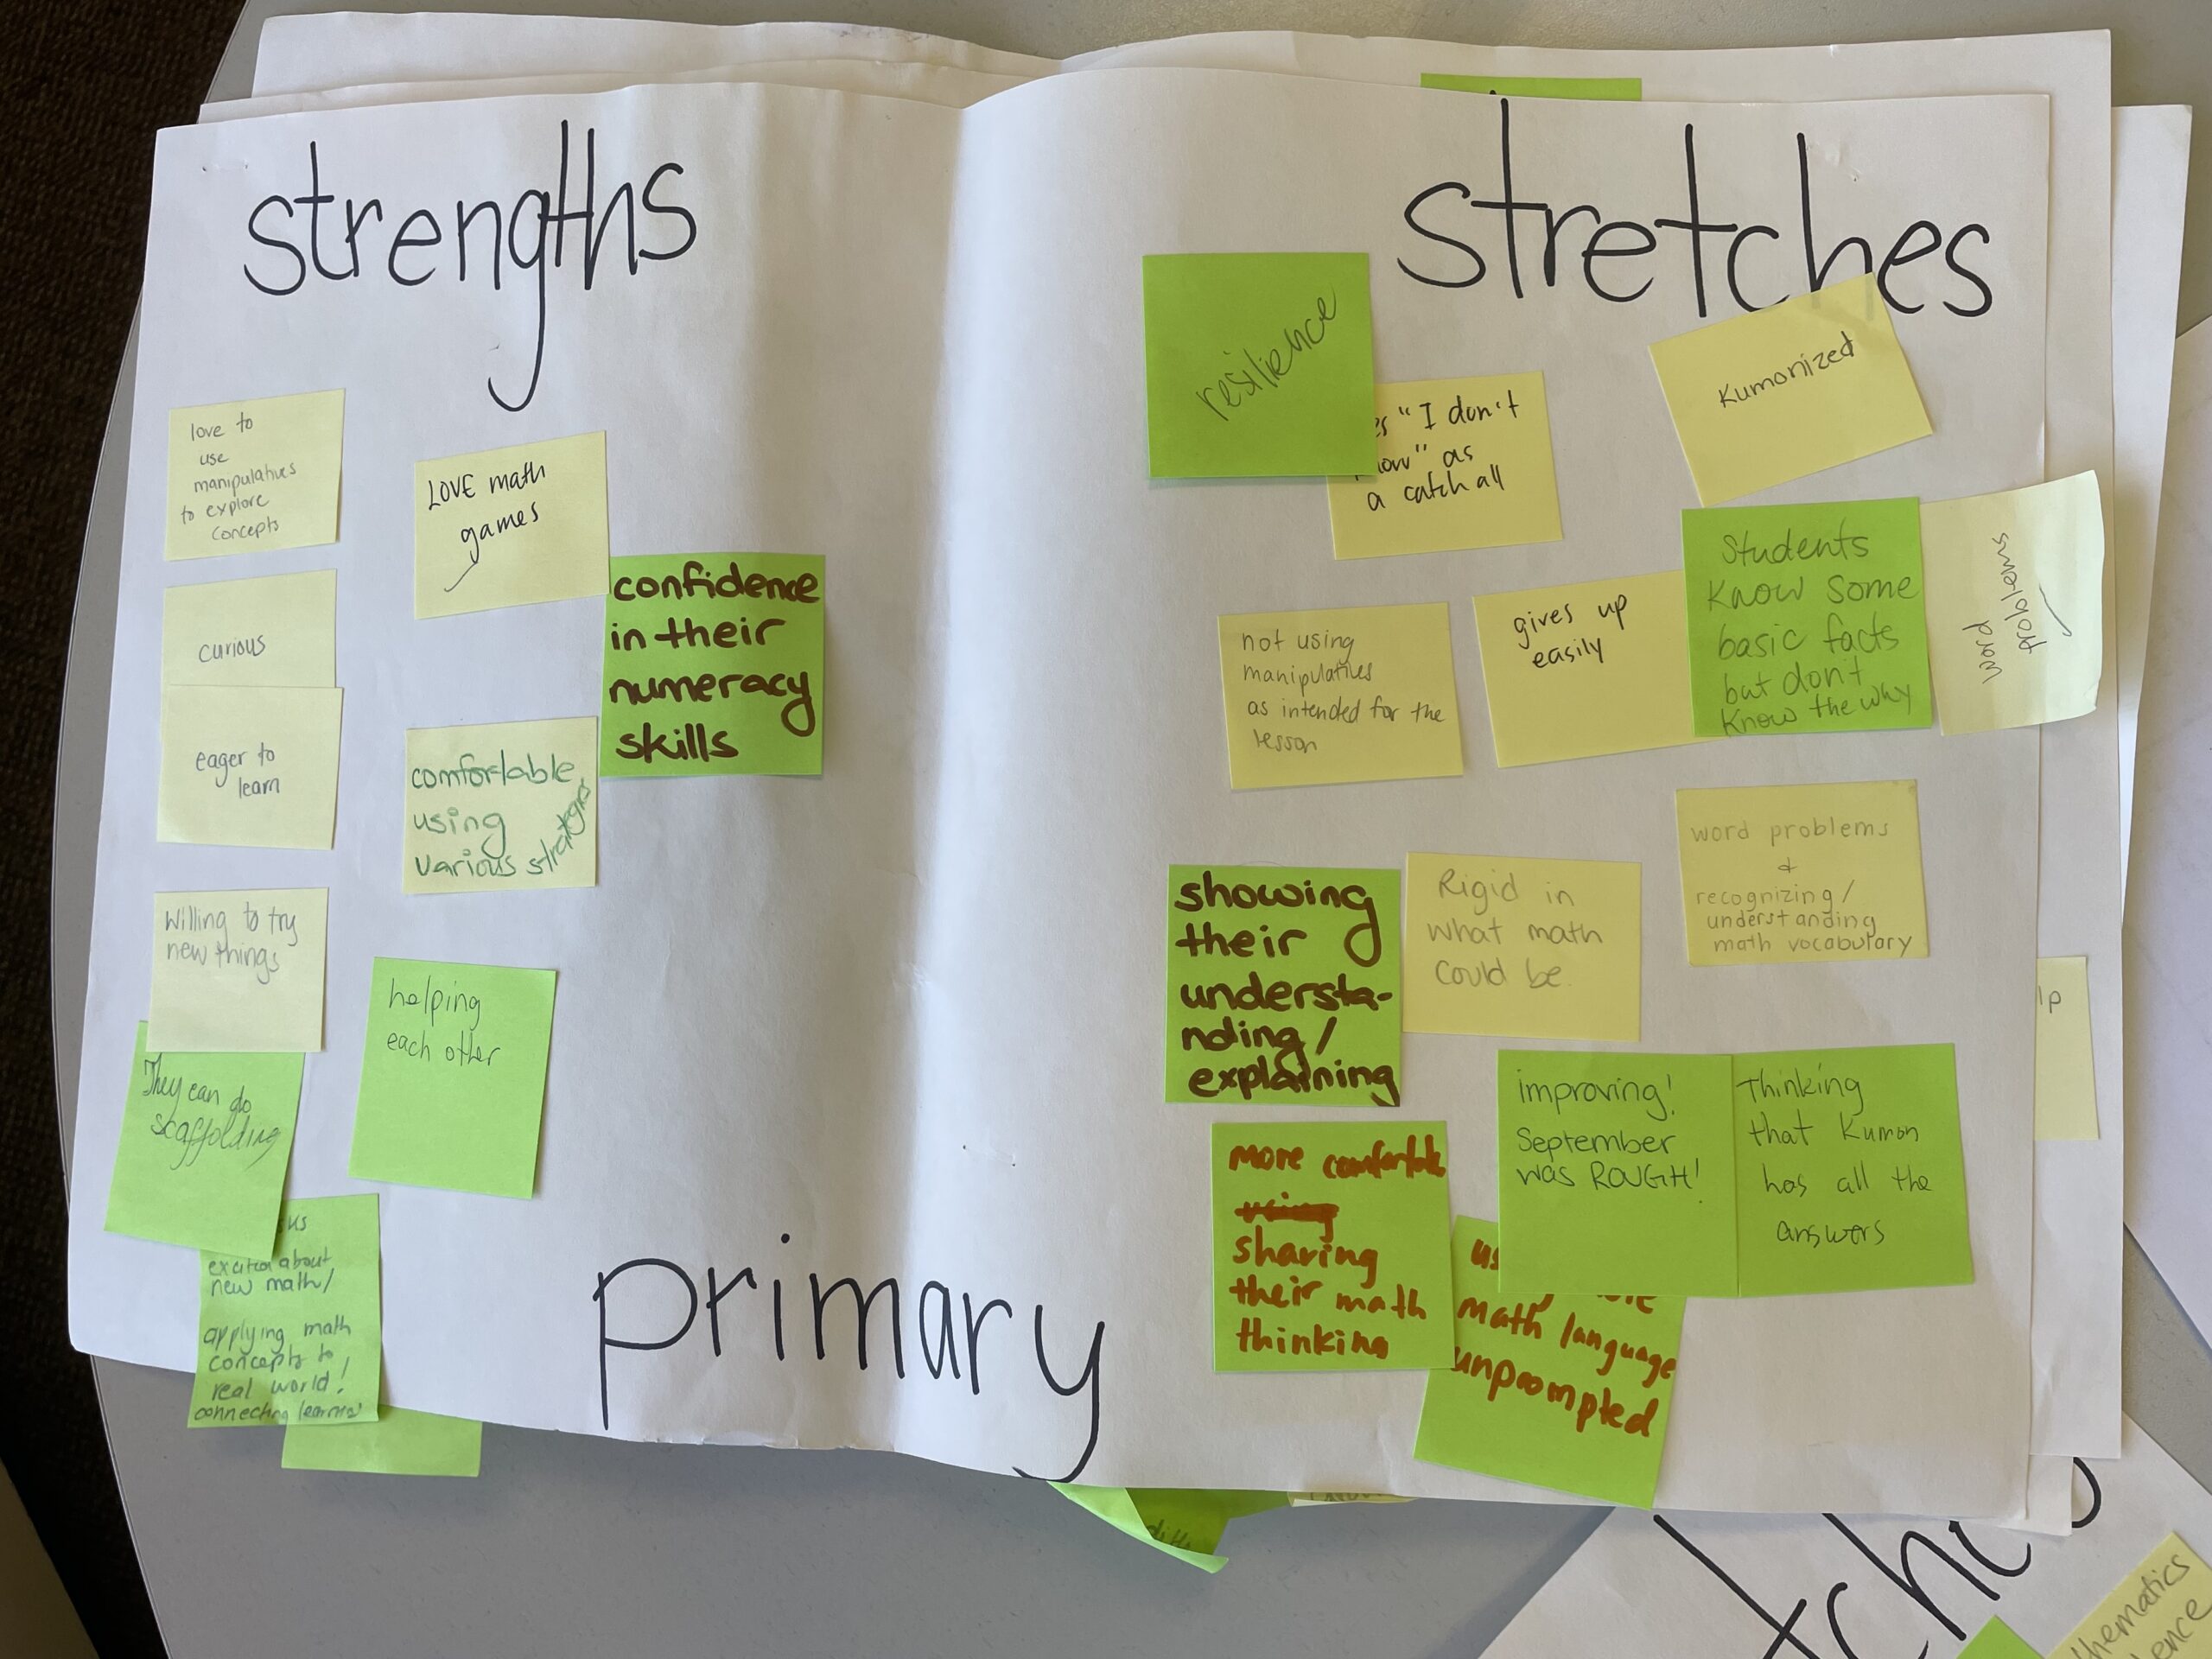 strengths
love to
use
manipulatives
to explore
concepts
LOVE math
games
confidence
in their
numeracy
skills
curious
eager to
learn
comfortable
using
various strategies
Willing to try
new things
helping
each other
They can do
scaffolding
excited about
new math/
applying math
concepts to
real world!
connecting learning!
primary
stretches
resilience
"I don't
as
a catch all
Kumonized
not using
manipulatives
as intended for the
lesson
gives up
easily
Students
Know some
basic facts
but don't
Know the why
word
problems
showing
their
understa-
nding/
explaining
Rigid in
what math
could be.
word problems
&
recognizing/
understanding
math vocabulary
more comfortable
using
sharing
their math
thinking
math language
unprompted
improving!
September
was ROUGH!
Thinking
that Kumon
has all the
answers